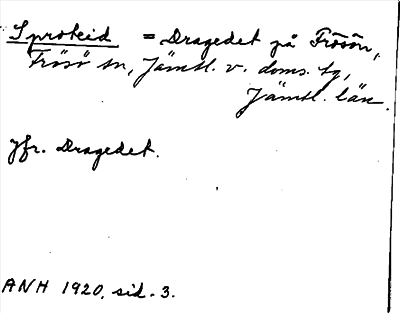 Sproteid = Dragedet på Frösön,
Frösö sn, Jämtl. v. doms. tg,
Jämtl. län.
Jfr. Dragedet.
ANH 1920, sid. 3.